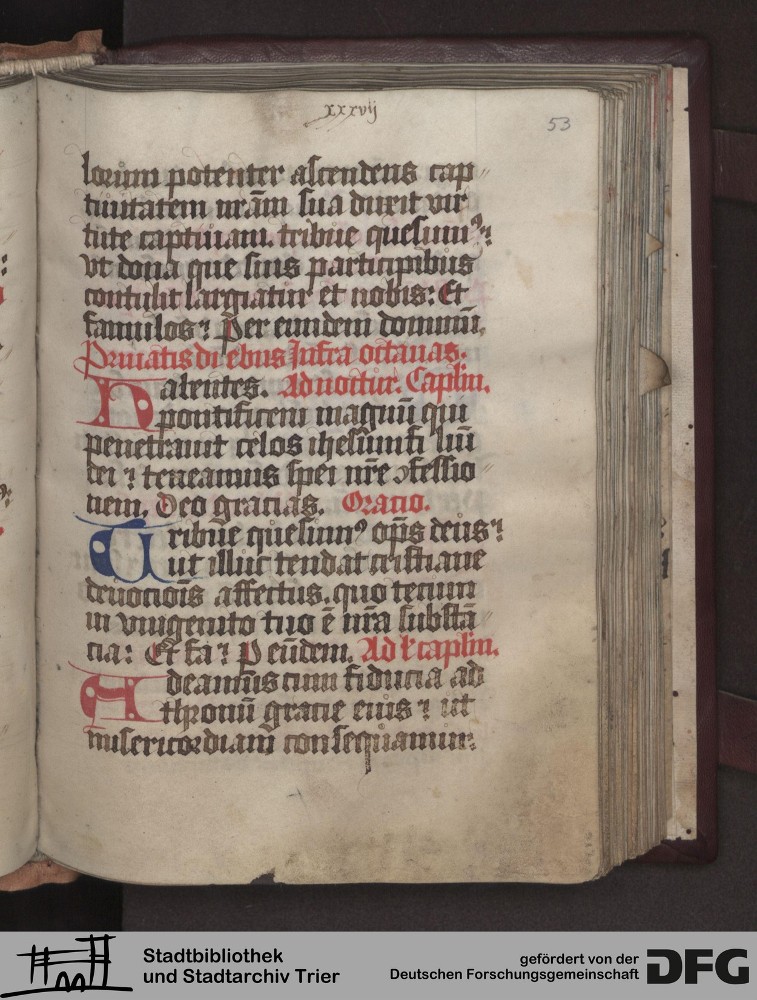 xxxvij
53
lorum potenter ascendens cap
tiuitatem nr̄am sua duxit vir
tute captiuam. tribue quesumꝰ:
vt dona que suis participibus
contulit largiatur et nobis: Et
famulos: Per eundem dominū.
Priuatis diebus Infra octauas.
Habentes. Ad noctur. Caplm.
pontificem magnū qui
penetrauit celos ihesum fi liū
dei ⁊ teneamus spei nr̄e ꝯfessio
nem. Deo gracias. Oracio.
Tribue quesumꝰ op̄s deus:
ut illuc tendat cristiane
deuocōis affectus. quo tecum
in vnigenito tuo ē nr̄a substā
cia: Et fa: P eūdem. Ad caplm.
Adeamus cum fiducia ad
thronū gracie eius: ut
misericordiam consequamur:
Stadtbibliothek
und Stadtarchiv Trier
gefördert von der
Deutschen Forschungsgemeinschaft
DFG